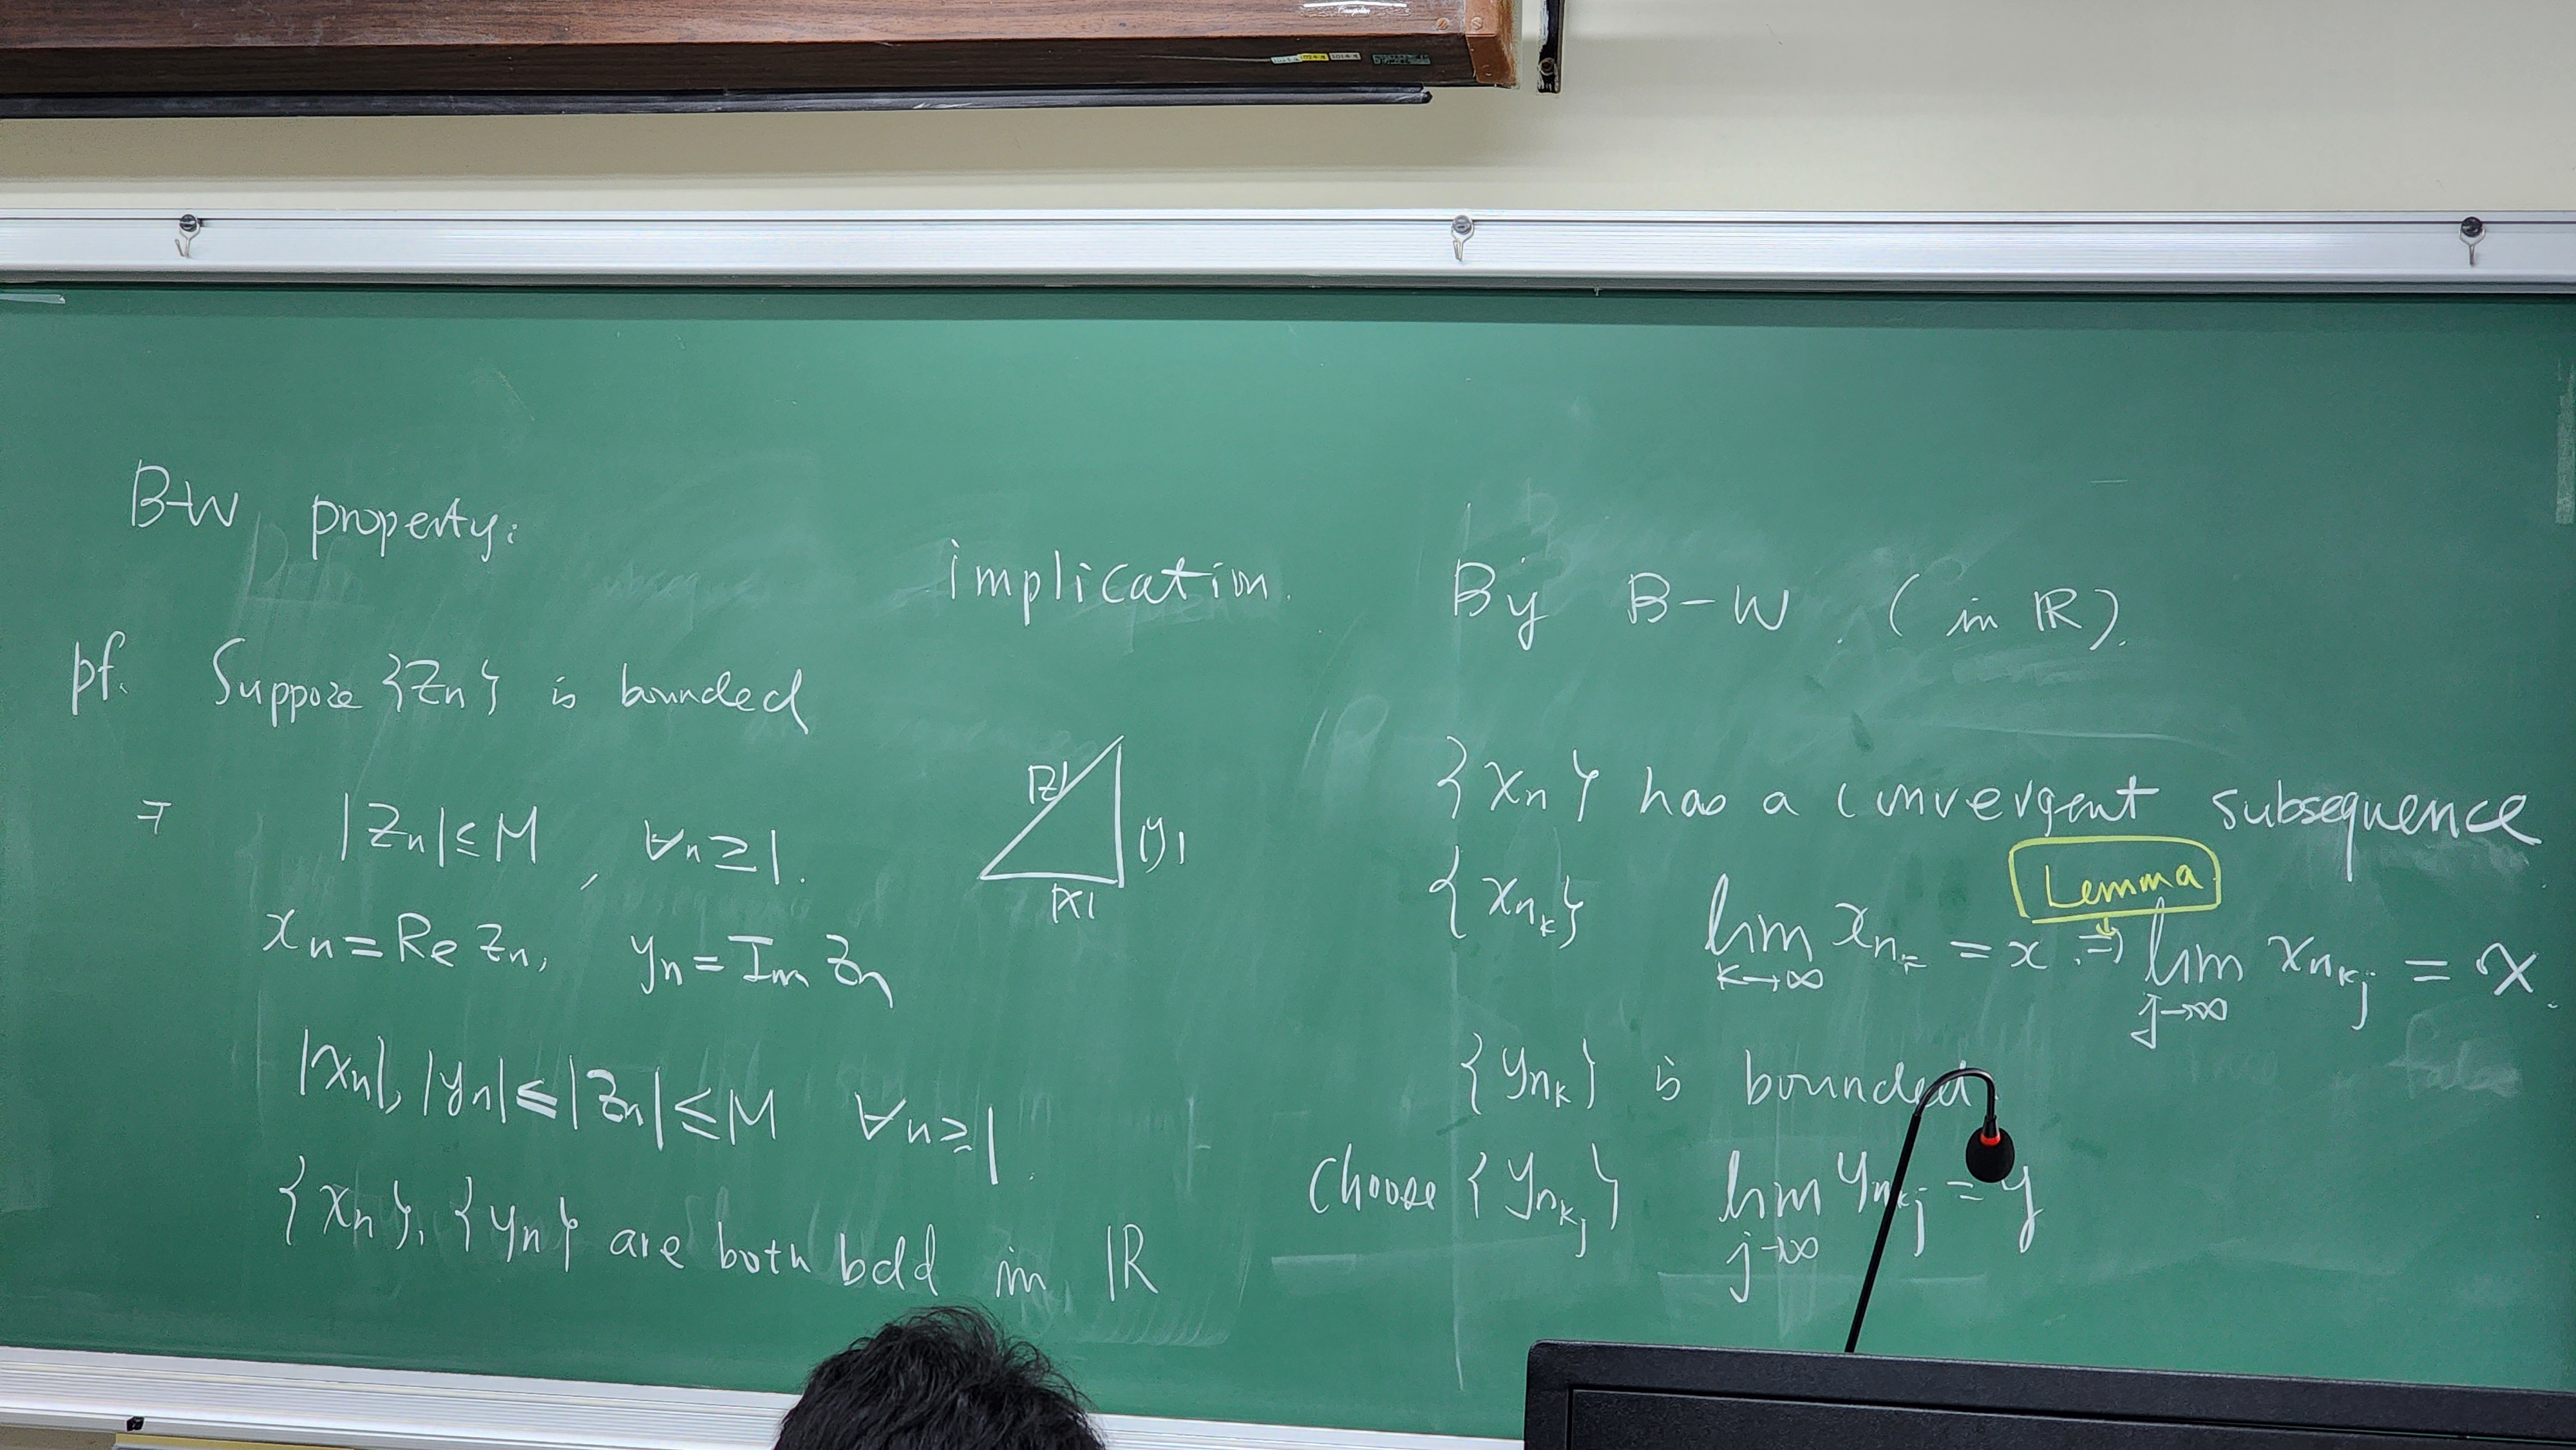 B-W property:
implication.
pf. Suppose {Zn} is bounded
|Zn| ≤ M, ∀n ≥ 1.
|Z|
|y|
|x|
xn = Re Zn, yn = Im Zn
|xn|, |yn| ≤ |Zn| ≤ M ∀n ≥ 1.
{xn}, {yn} are both bdd in ℝ
By B-W. (in ℝ).
{xn} has a convergent subsequence
Lemma
{x_{n_k}} lim_{k→∞} x_{n_k} = x. ⇒ lim_{j→∞} x_{n_{k_j}} = x.
{y_{n_k}} is bounded.
Choose {y_{n_{k_j}}} lim_{j→∞} y_{n_{k_j}} = y